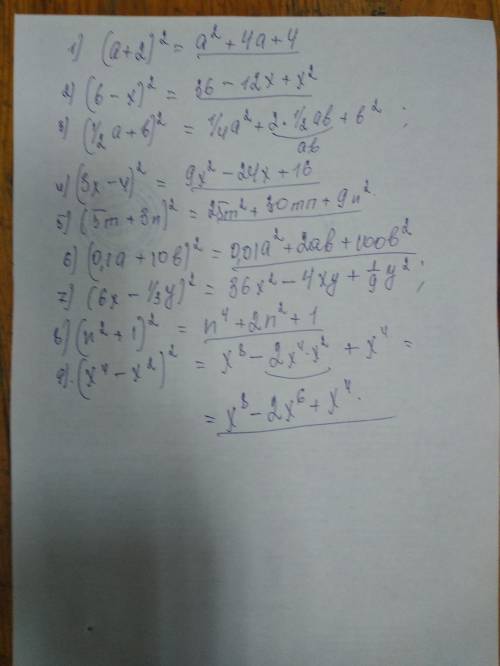 1) (a+2)² = a² + 4a + 4
2) (6 - x)² = 36 - 12x + x²
3) (1/2 a + b)² = 1/4 a² + 2 · 1/2 ab + b² ;
ab
4) (3x - 4)² = 9x² - 24x + 16
5) (5m + 3n)² = 25m² + 30mn + 9n².
6) (0,1a + 10b)² = 0,01a² + 2ab + 100b²
7) (6x - 1/3y)² = 36x² - 4xy + 1/9 y² ;
8) (n² + 1)² = n⁴ + 2n² + 1
9). (x⁴ - x²)² = x⁸ - 2x⁴·x² + x⁴ =
= x⁸ - 2x⁶ + x⁴.